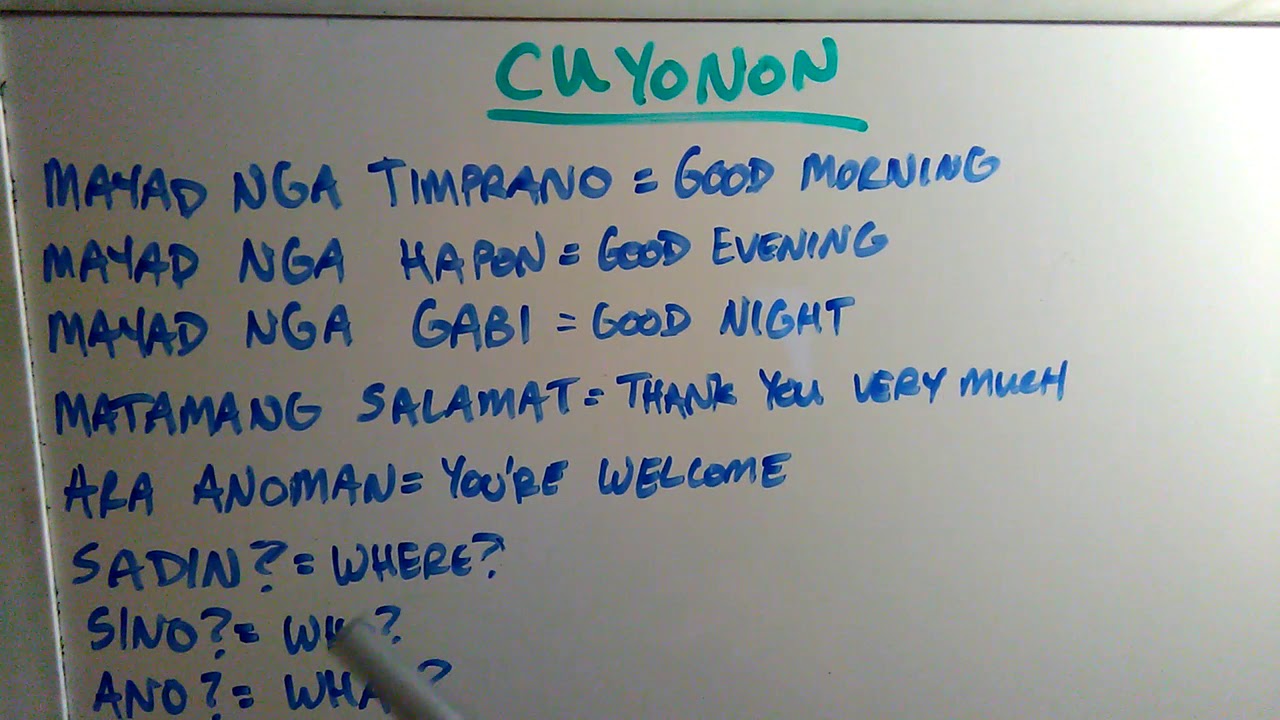 CUYONON
MAYAD NGA TIMPRANO = GOOD MORNING
MAYAD NGA HAPON = GOOD EVENING
MAYAD NGA GABI = GOOD NIGHT
MATAMANG SALAMAT = THANK YOU VERY MUCH
ARA ANOMAN = YOU'RE WELCOME
SADIN? = WHERE?
SINO? = WHO?
ANO? = WHAT?